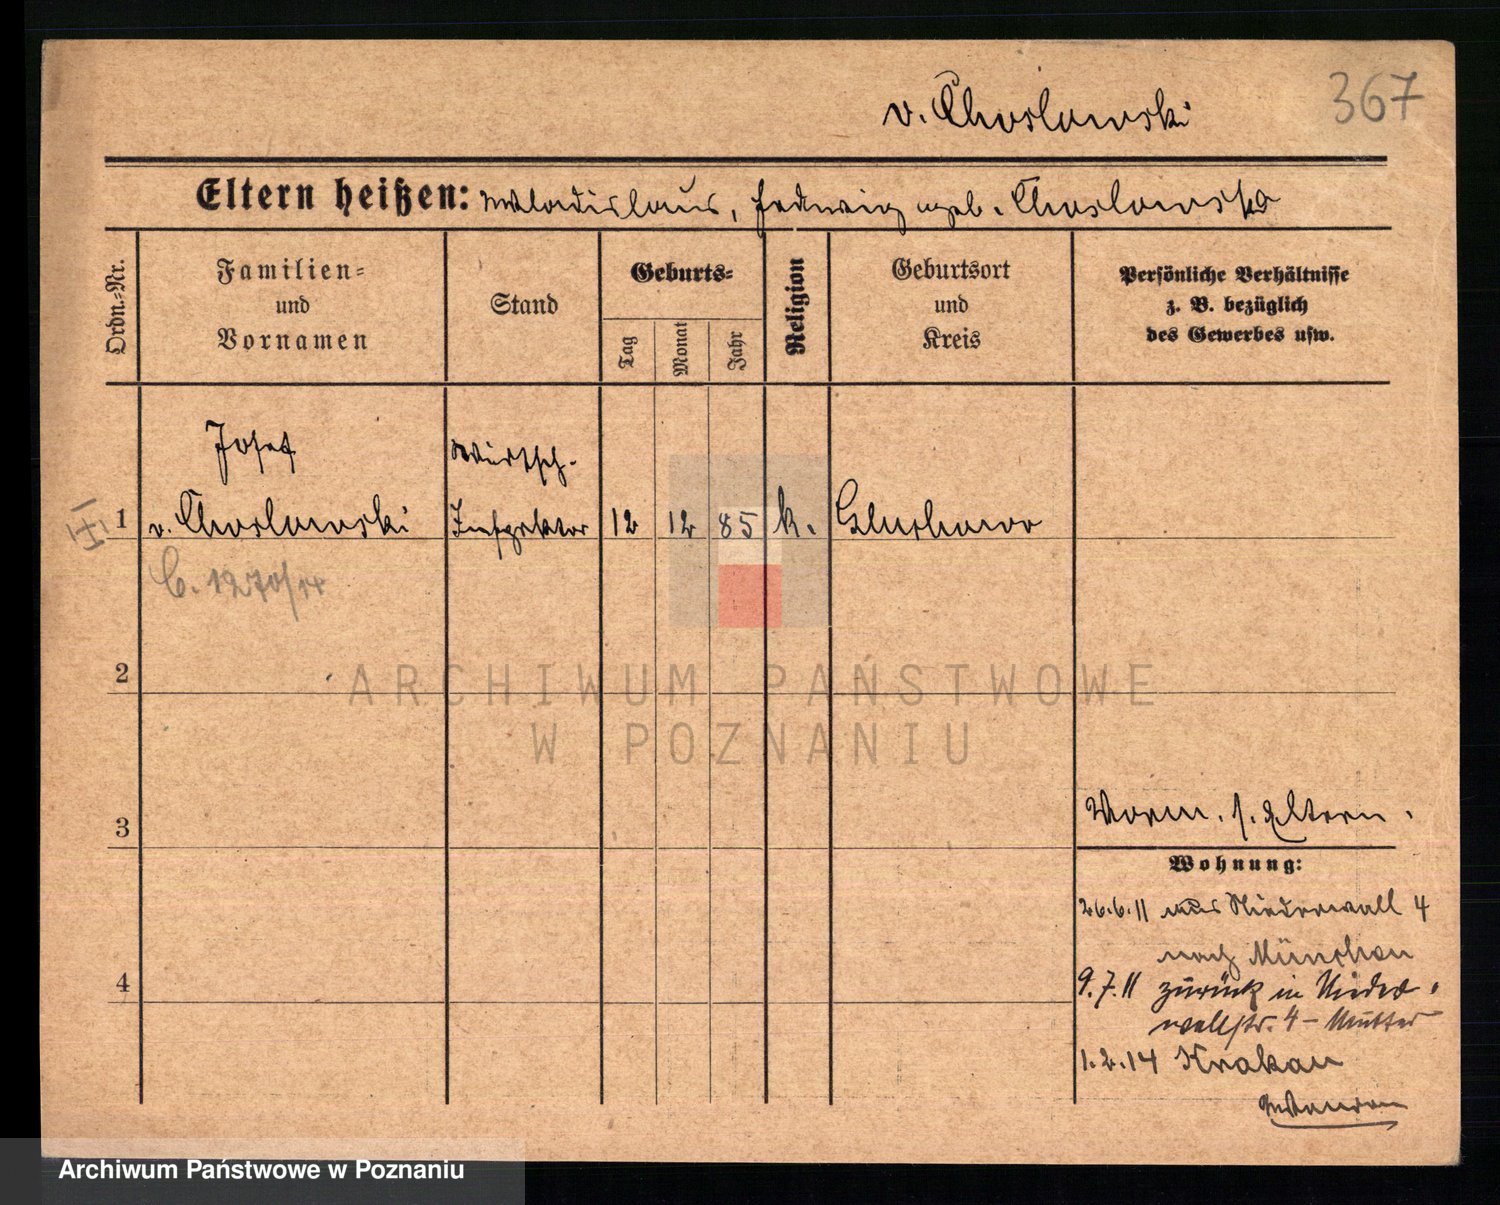 v. Choslowski 367
Eltern heißen: Wladislaus, Hedwig geb. Choslowska
Ordn.-Nr.
Familien-
und
Vornamen
Stand
Geburts-
Tag
Monat
Jahr
Religion
Geburtsort
und
Kreis
Persönliche Verhältnisse
z. B. bezüglich
des Gewerbes usw.
Josef Wirtsch.-
1 v. Choslowski Inspektor 12 12 85 k. Gluchowo
C. 1270/14
2
3
Vorm. s. Eltern.
Wohnung:
26.6.11 aus Niederwall 4
nach München
4
9.7.11 zurück in Nieder-
wallstr. 4 – Mutter
1.2.14 Krakau
ARCHIWUM PAŃSTWOWE
W POZNANIU
Archiwum Państwowe w Poznaniu